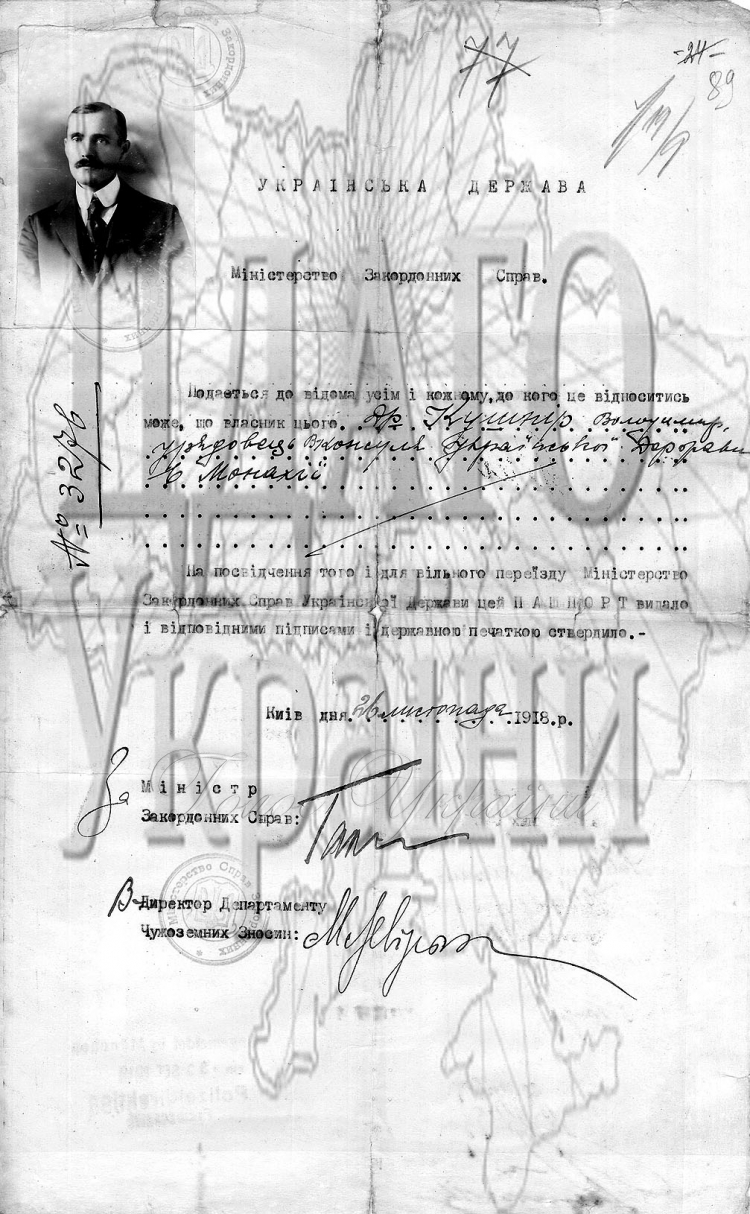 77
-24-
89
УКРАІНСЬКА ДЕРЖАВА
Міністерство Закордонних Справ.
№ 3276
Подається до відома усім і кожному, до кого це відноситись
може, що власник цього Др. Кушнір Володимир,
урядовець Консуля Української Держави
в Монахії
На посвідчення того і для вільного переїзду Міністерство
Закордонних Справ Української Держави цей ПАШПОРТ видало
і відповідними підписами і державною печаткою ствердило.-
Київ дня 26 листопада 1918.р.
За Міністр
Закордонних Справ:
В. Директор Департаменту
Чужоземних Зносин:
Міністерство Справ Закордонних
ЦДАГО
України
Голос України